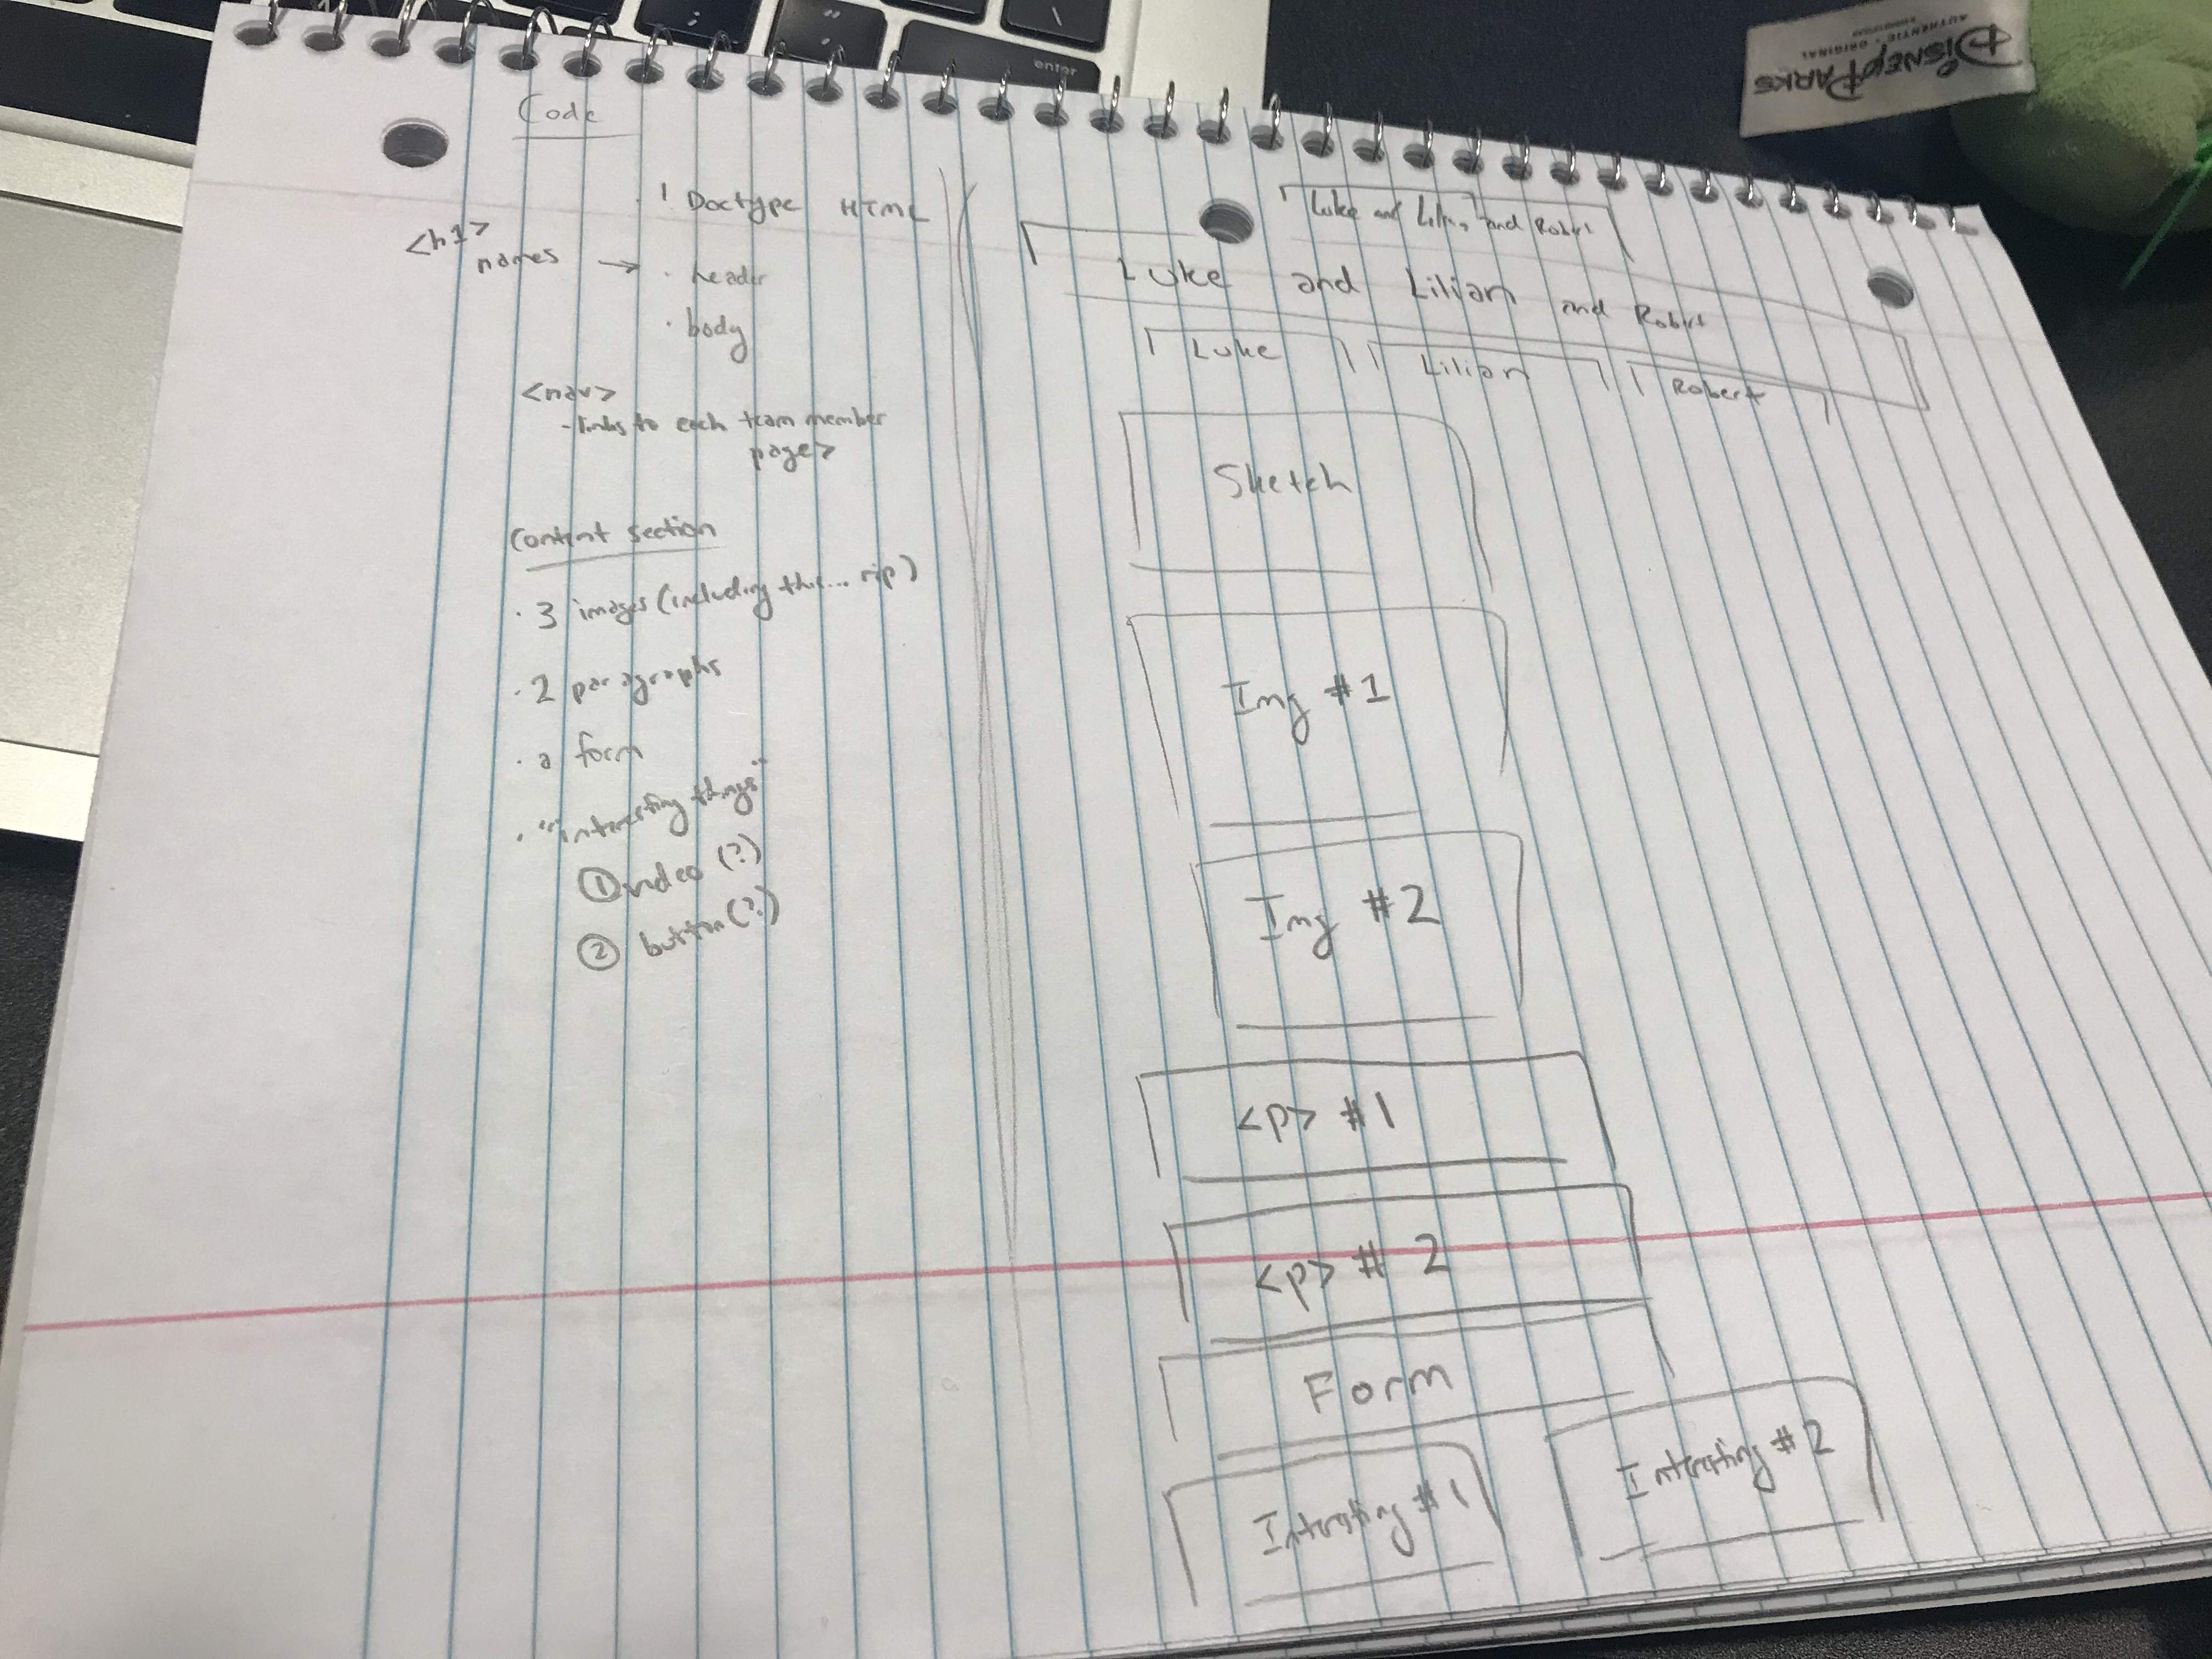 Code
! Doctype HTML
<h1> names → · header
· body
<nav>
- links to each team member
page>
Content section
· 3 images (including this... rip)
· 2 paragraphs
· a form
· "interesting things"
① video (?)
② button (?)
Luke and Lilian and Robert
Luke and Lilian and Robert
Luke
Lilian
Robert
Sketch
Img #1
Img #2
<p> #1
<p> #2
Form
Interesting #1
Interesting #2
enter
Disney PARKS
AUTHENTIC · ORIGINAL